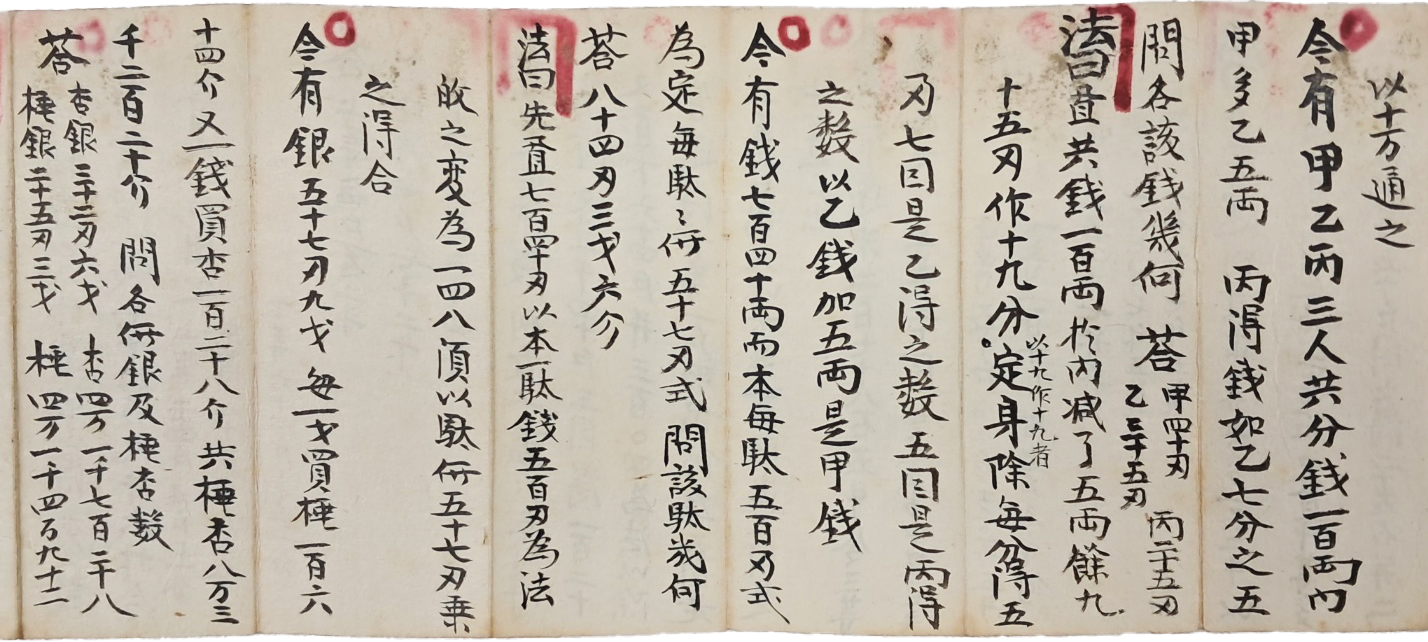 以十万通之
今有甲乙丙三人共分錢一百両内
甲多乙五両 丙得錢如乙七分之五
問各該錢幾何 荅 甲四十刄 丙二十五刄
乙三十五刄
法曰置共錢一百両於内减了五両餘九
十五刄作十九分定身除毎分得五
以十九作十九者
刄七因是乙得之数五因是丙得
之数以乙錢加五両是甲錢
今有錢七百四十両而本毎駄五百刄式
為定毎駄〻価五十七刄式 問該駄幾何
荅八十四刄三戈六分
法曰先置七百四十刄以本一駄錢五百刄為法
呚之変為一四八須以駄価五十七刄乗
之得合
今有銀五十七刄九戈 毎一戈買棰一百六
十四介又一錢買杏一百二十八介共棰杏八万三
千二百二十介 問各価銀及棰杏数
荅 杏銀三十二刄六戈 杏四万一千七百二十八
棰銀二十五刄三戈 棰四万一千四百九十二